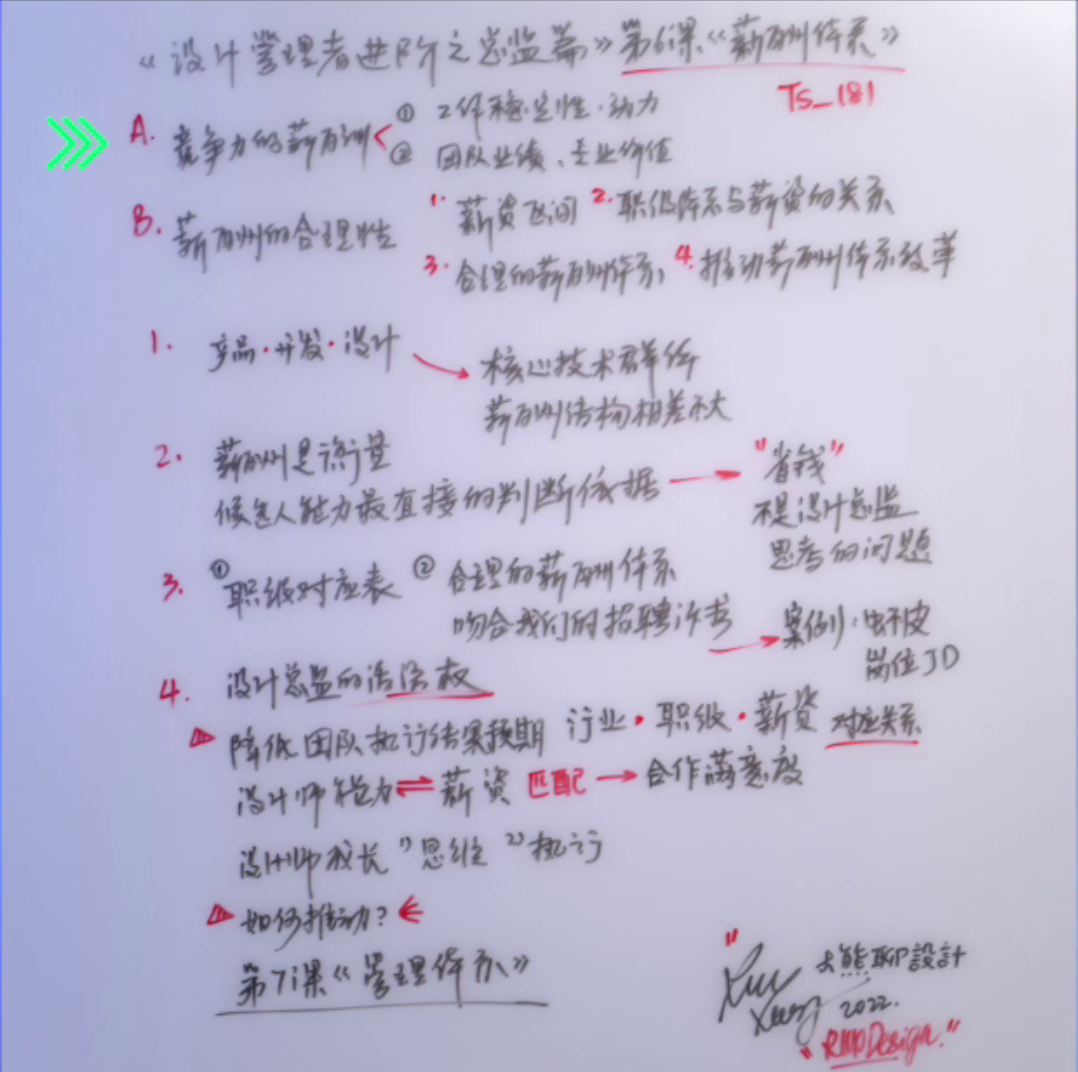 《设计管理者进阶之总监篇》第6课《薪酬体系》
Ts_181
A. 竞争力的薪酬 < ① 工作稳定性·动力
② 团队业绩、企业价值
B. 薪酬的合理性 1. 薪资区间 2. 职级体系与薪资的关系
3. 合理的薪酬体系 4. 推动薪酬体系改革
1. 产品·开发·设计 → 核心技术群体
薪酬结构相差不大
2. 薪酬是衡量
候选人能力最直接的判断依据 → "省钱"
不是设计总监
思考的问题
3. ①职级对应表 ② 合理的薪酬体系
吻合我们的招聘 → 案例：虾皮
岗位JD
4. 设计总监的话语权
降低团队执行结果预期 行业·职级·薪资 对应关系
设计师能力 ⇌ 薪资 匹配 → 合作满意度
设计师成长 1)思维 2)执行
如何推动? ←
第7课《管理体系》
大熊聊設計
2022.
"RMDDesign."